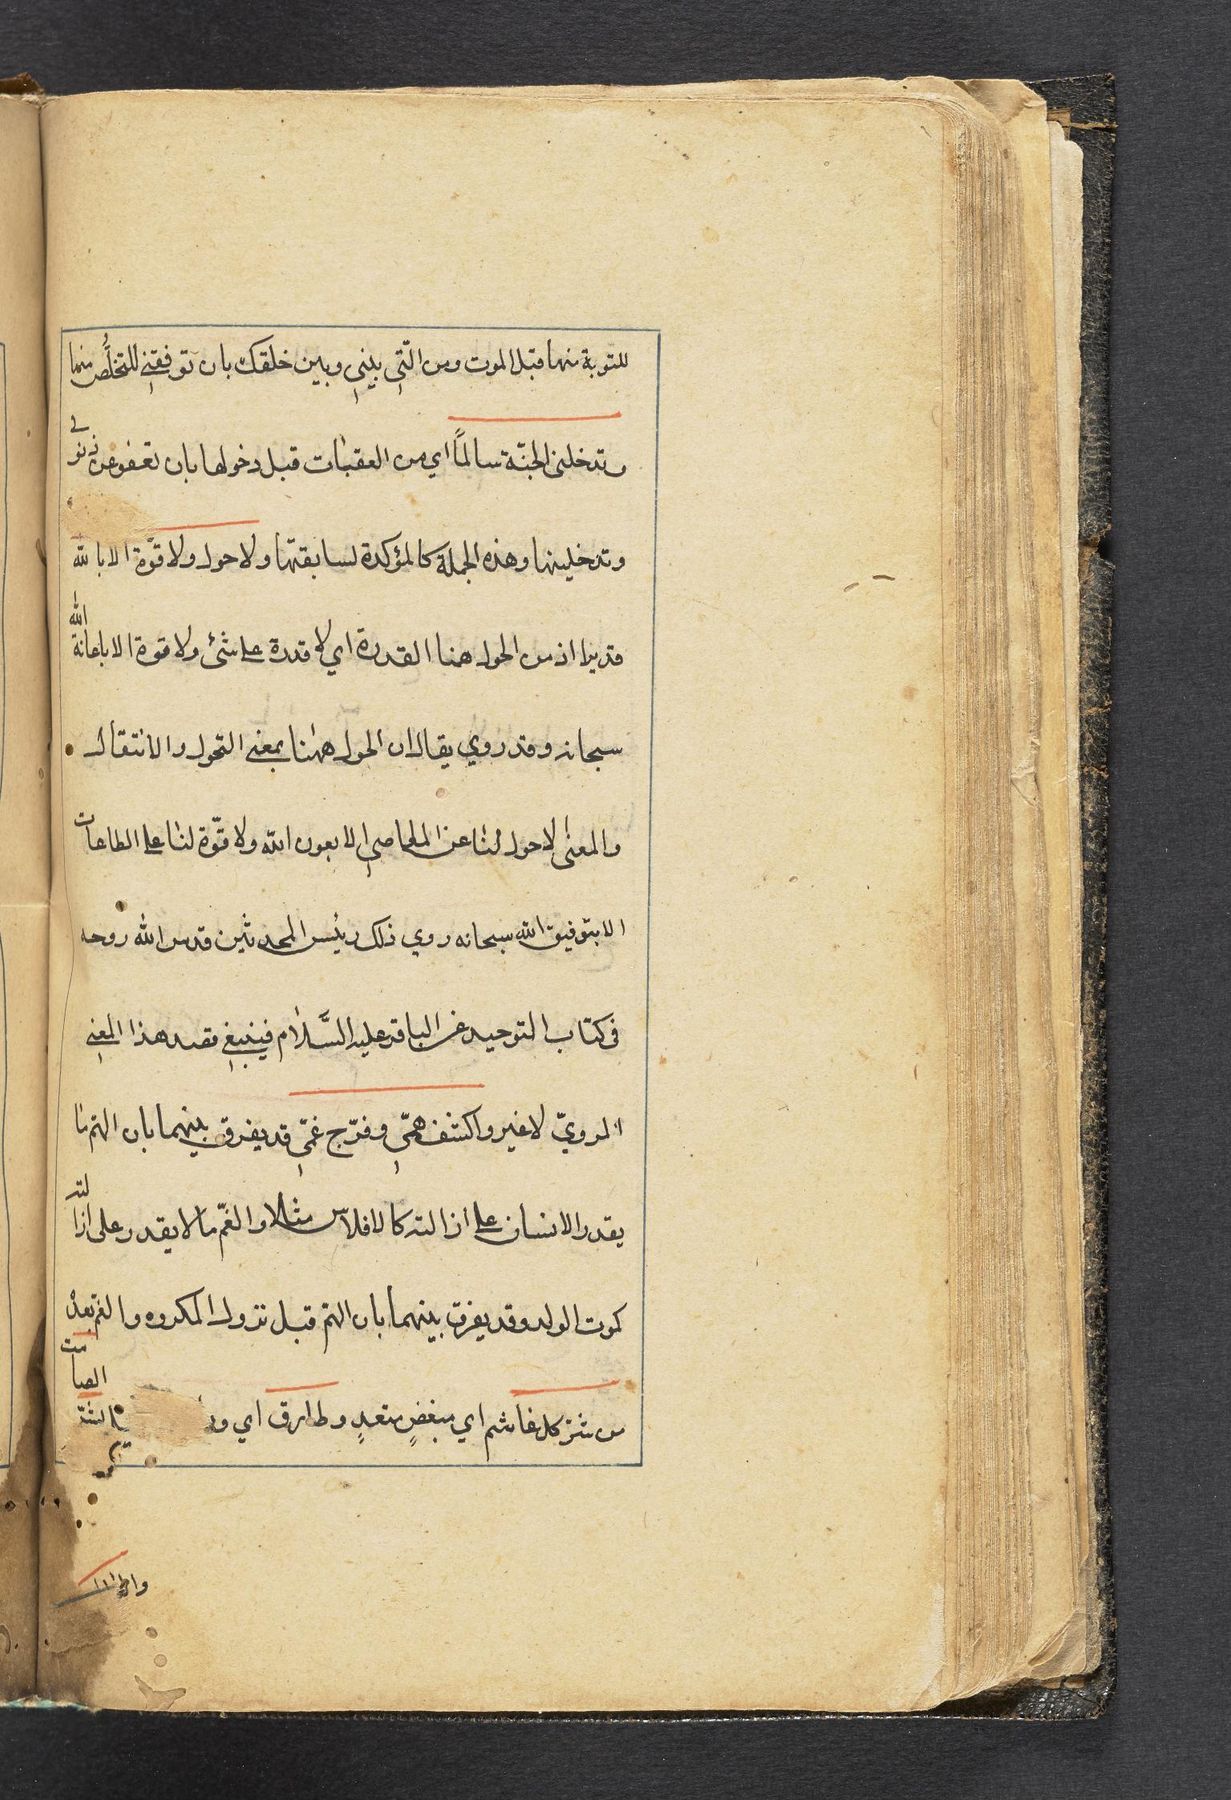 للتوبة منها قبل الموت ومن التي بيني وبين خلقك بان توفقني للتخلُّص منها
وتدخلني الجنّة سالمًا اي من العقبات قبل دخولها بان تعفو عن ذنوبي
وتدخلينها وهذه الجملة كالمؤكدة لسابقتها ولا حول ولا قوّة الا بالله
قد يراد من الحول هنا القدرة اي لا قدرة على شئ ولا قوة الا باعانة الله
سبحانه وقد روي يقال ان الحول ههنا بمعنى التحول والانتقال
والمعنى لا حول لنا عن المعاصي الا بعون الله ولا قوّة لنا على الطاعات
الا بتوفيق الله سبحانه روي ذلك رئيس المحدثين قدس الله روحه
في كتاب التوحيد عن الباقر عليه السَّلام فينبغي قصد هذا المعنى
المرويّ لا غير واكشف همّي وفرّج غمّي قد يفرق بينهما بان الهم ما
يقدر الانسان على ازالته كالافلاس مثلا والغمّ ما لا يقدر على ازالته
كموت الولد وقد يفرق بينهما بان الهم قبل نزول المكروه والغم بعده
من شرّ كل غاشم اي مبغضٍ متعدٍ وطارق اي
الصامت